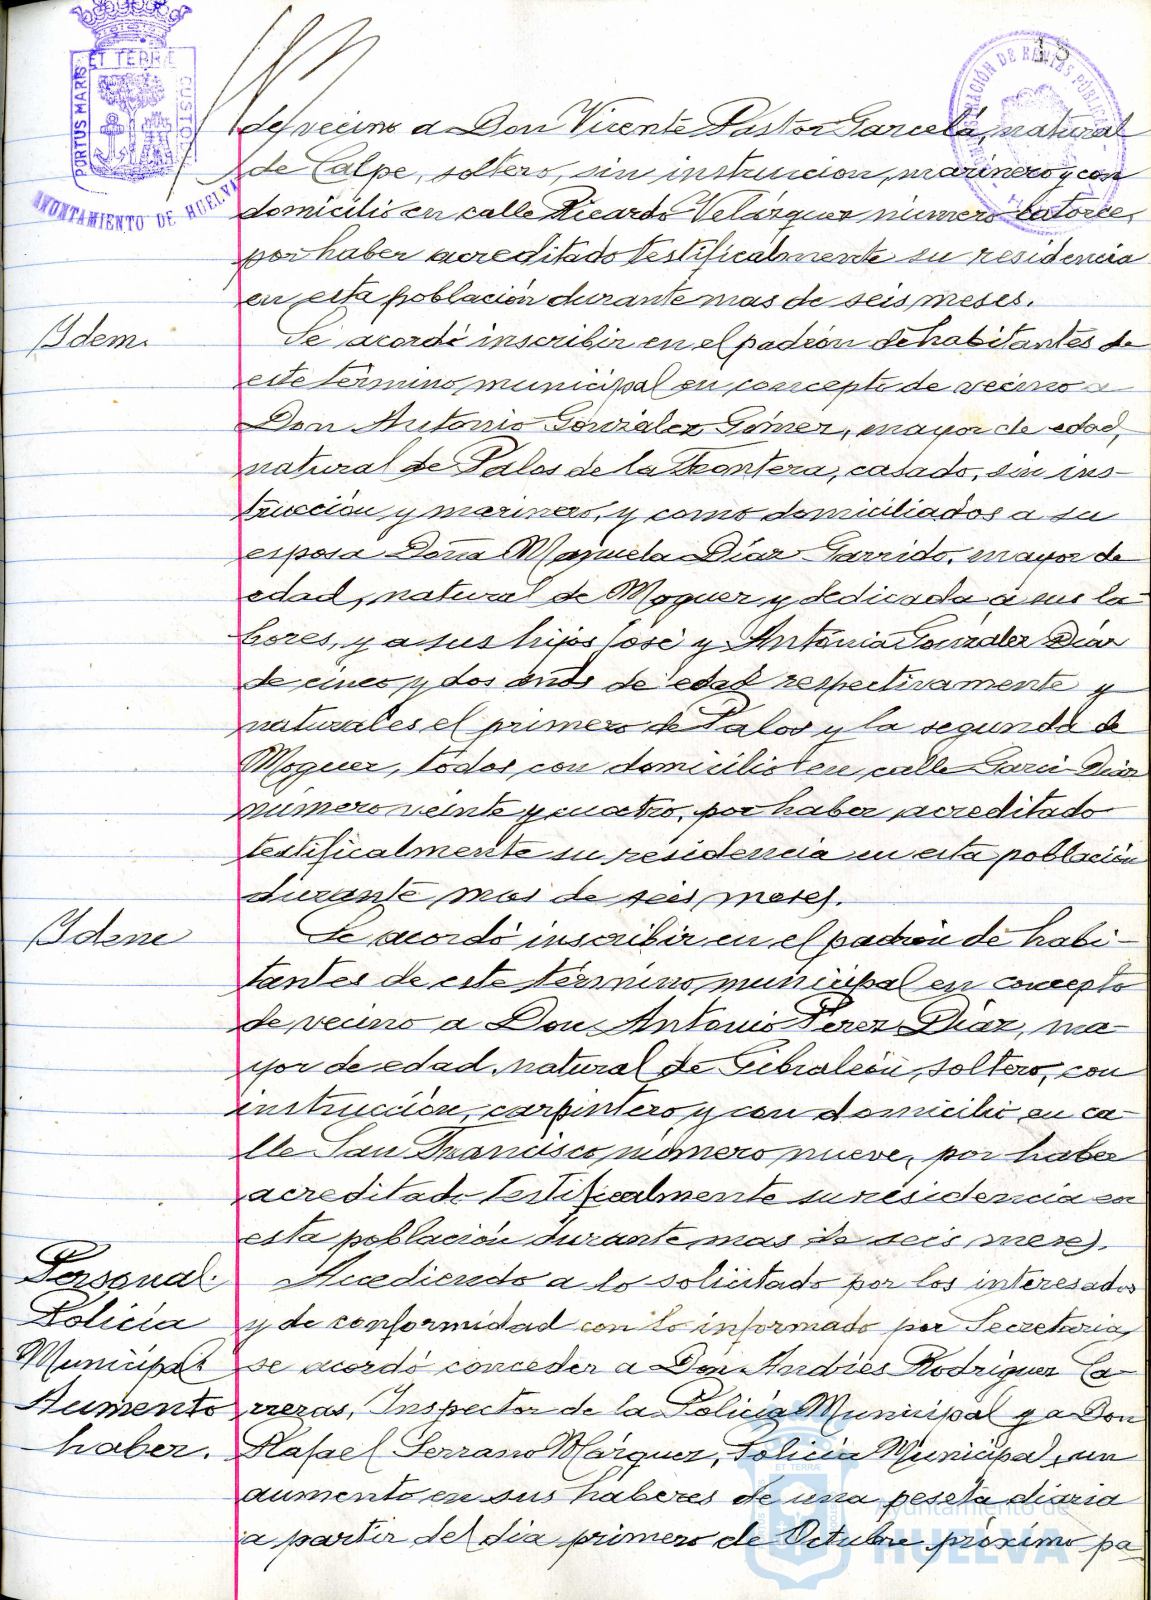 15
PORTUS MARIS ET TERRÆ CUSTODIA
AYUNTAMIENTO DE HUELVA
ADMINISTRACIÓN DE RENTAS PÚBLICAS
de vecino a Don Vicente Pastor Garcelá, natural
de Calpe, soltero, sin instrucion, marinero y con
domicilio en calle Ricardo Velázquez número catorce,
por haber acreditado testificalmente su residencia
en esta población durante mas de seis meses.
Idem.
Se acordó inscribir en el padrón de habitantes de
este término municipal en concepto de vecino a
Don Antonio González Gómez, mayor de edad,
natural de Palos de la Frontera, casado, sin ins-
trucción y marinero, y como domiciliados a su
esposa Doña Manuela Díaz Garrido, mayor de
edad, natural de Moguer y dedicada a sus la-
bores, y a sus hijos José y Antónia González Díaz
de cinco y dos años de edad respectivamente y
naturales el primero de Palos y la segunda de
Moguer, todos con domicilio en calle Garci-Díaz
número veinte y cuatro, por haber acreditado
testificalmente su residencia en esta población
durante mas de seis meses.
Idem
Se acordó inscribir en el padrón de habi-
tantes de este término municipal en concepto
de vecino a Don Antonio Pérez Díaz, ma-
yor de edad, natural de Gibraleón, soltero, con
instrucción, carpintero y con domicilio en ca-
lle San Francisco, número nueve, por haber
acreditado testificalmente su residencia en
esta población durante mas de seis meses.
Personal.
Policía
Municipal
Aumento
haber.
Accediendo a lo solicitado por los interesados
y de conformidad con lo informado por Secretaria,
se acordó conceder a Don Andrés Rodríguez Ca-
rreras, Inspector de la Policía Municipal y a Don
Rafael Serrano Márquez, Policía Municipal, un
aumento en sus haberes de una peseta diaria
a partir del día primero de Octubre próximo pa-
Ayuntamiento de
HUELVA